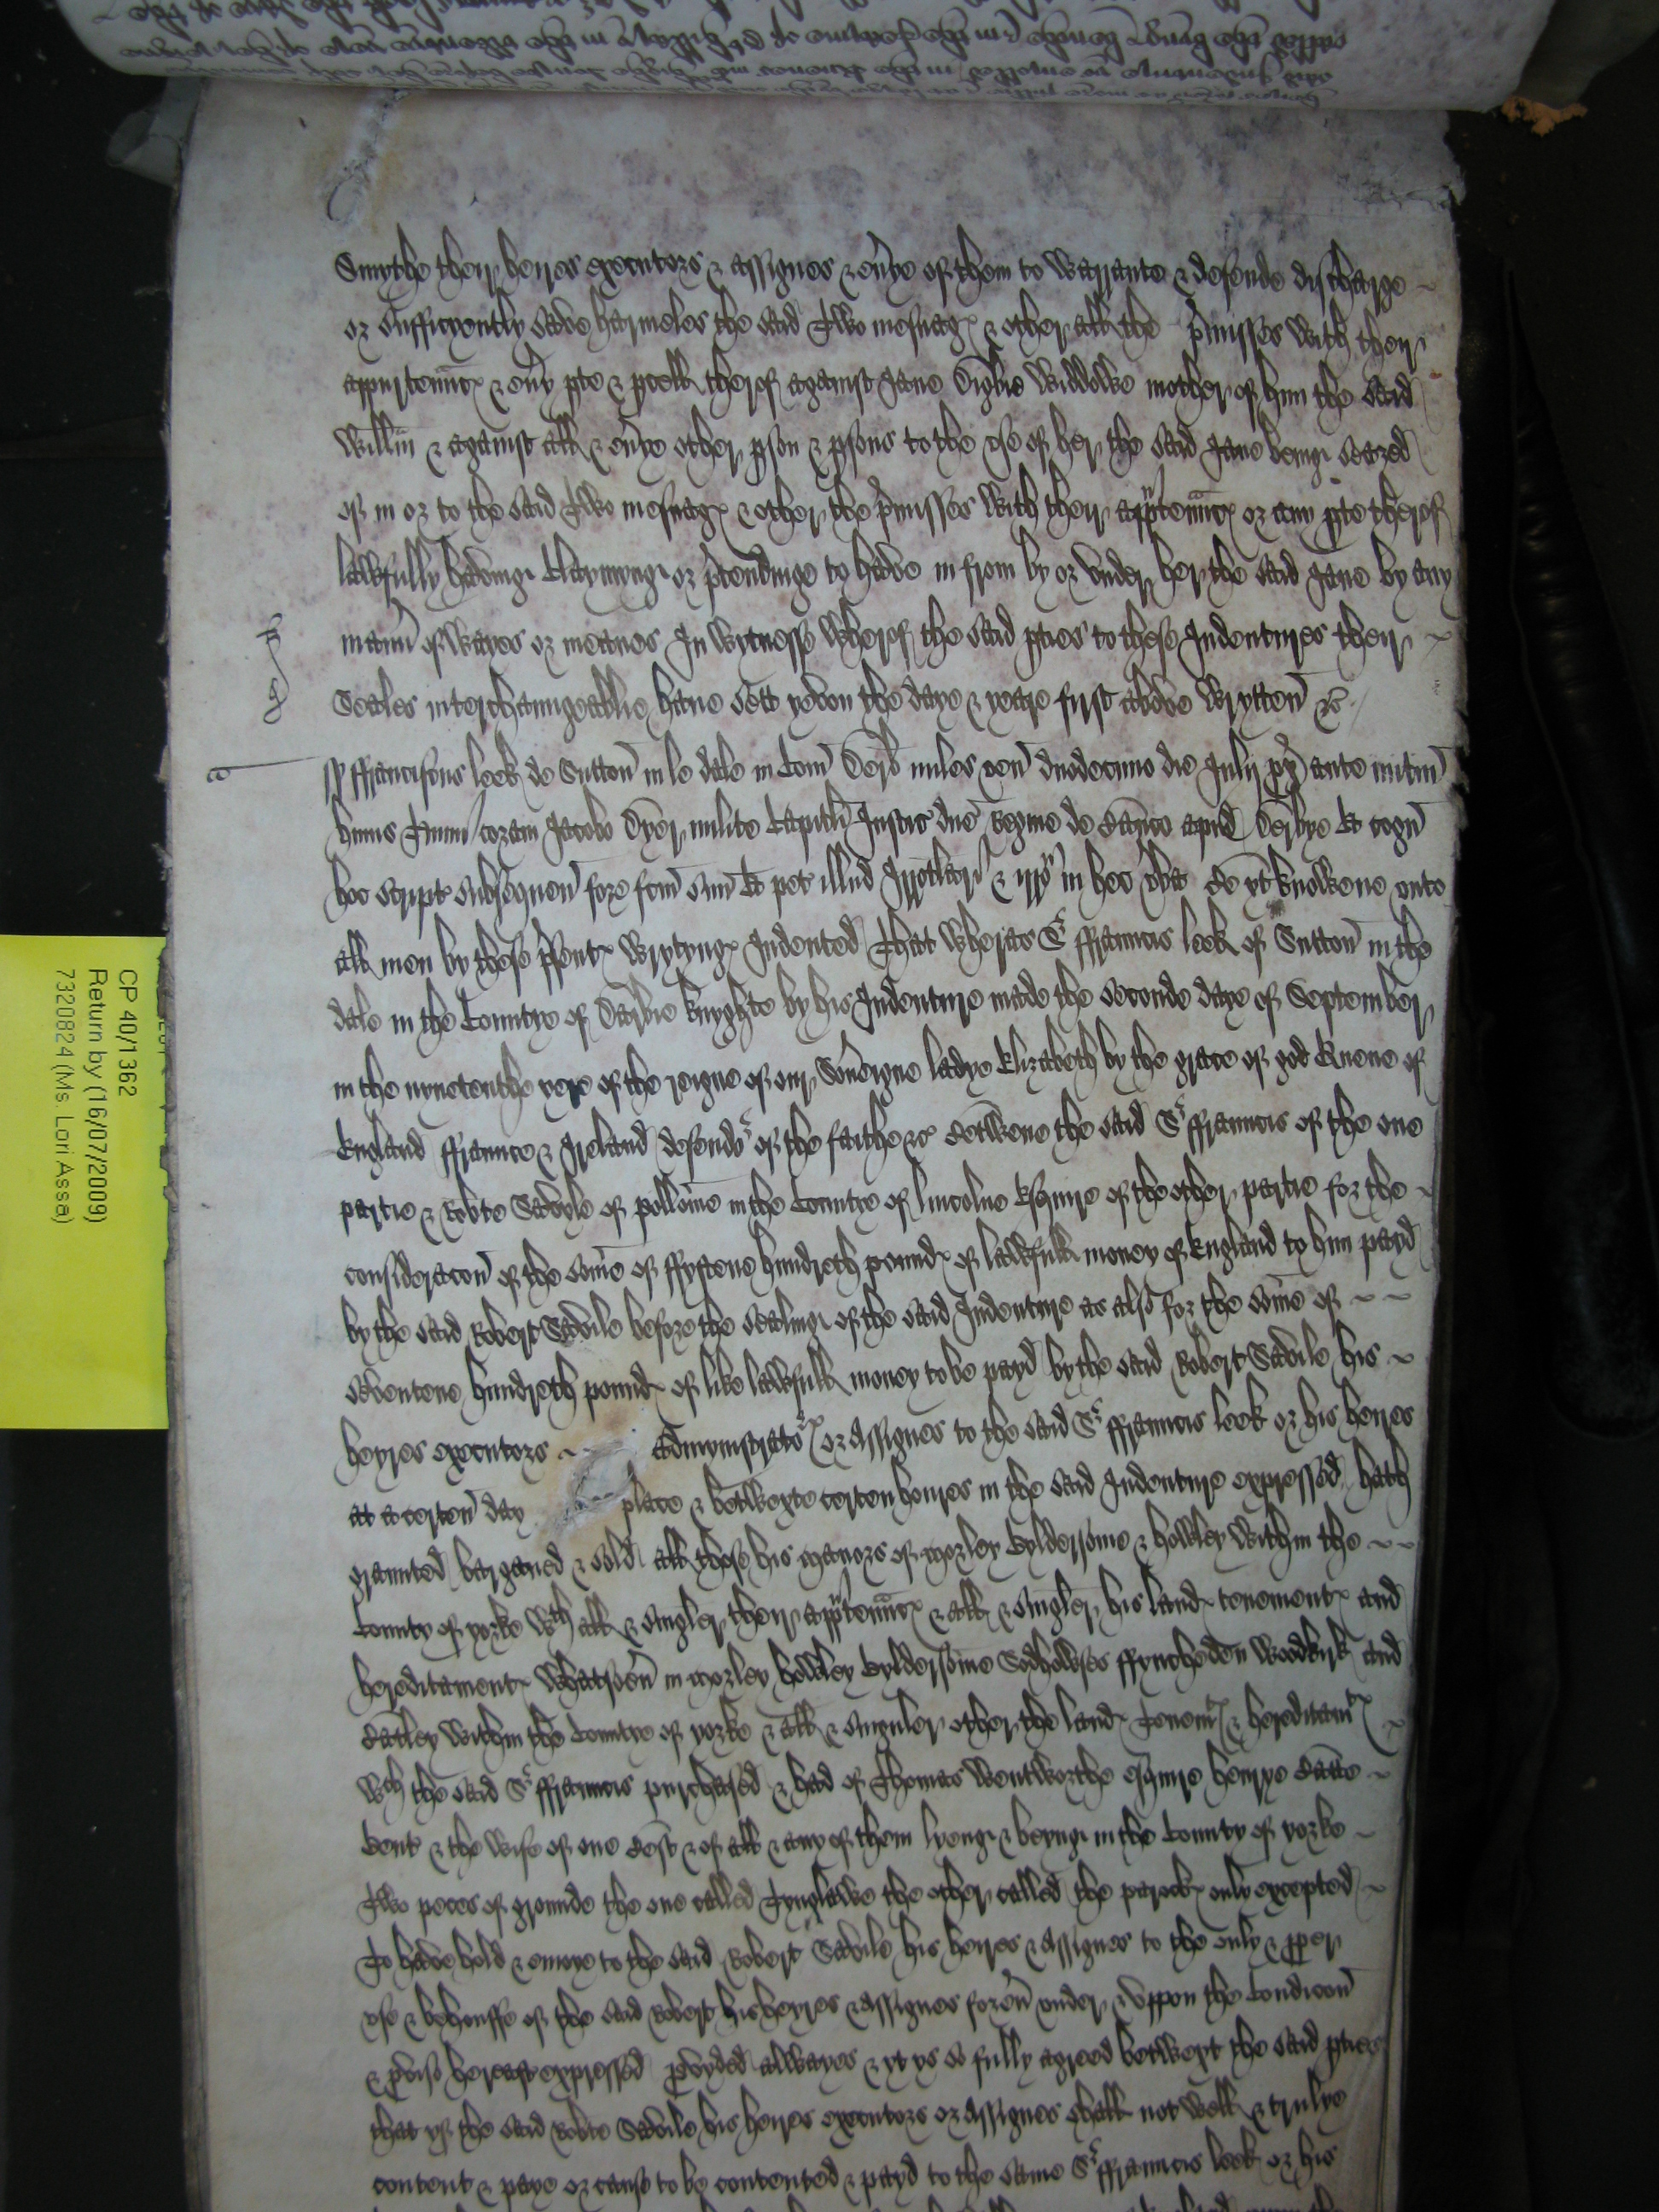 Smythe their heires executors & assignes & eu'ye of them to Warrante & defende discharge
or sufficyently save harmeles the said Two mesuag & other all the p'misses with their
appurtennc & eu'y pte & pcell therof against Jane Digbie Widdowe mother of him the said
Willm & against all & eu'ye other pson & psons to the vse of her the said Jane beinge seazed
of in or to the said Two mesuag & other the p'misses with their app'tennc or any pte therof
lawfully havinge Claymynge or p'tendinge to have in from by or vnder her the said Jane by any
mann' of Wayes or meanes In Wytnesse Wherof the said pties to these Indentures their
Seales interchaungeablie haue sett yeven the daye & yeare first above Wrytten &c
ffranciscus leek de Sutton in le dale in Com Derb miles ven duodecimo die Julij ante
huius Termi coram Jacobo Dyer milite Capitli Justic dne Regine de Banco apud Derbye Et cogn
hoc script subsequen fore fcm suu Et pet illud Irrotlari & in hec vba Be yt knowene vnto
all men by these p'sent Wrytyng Indented That Wheras Sr ffrauncis leek of Sutton in the
dale in the Countye of Darbie knyghte by his Indenture made the seconde daye of September
in the nynetenthe yere of the reigne of our Sou'eigne ladye Elizabeth by the grace of god Quene of
England ffraunce & Ireland defendor of the faithe &c Betwene the said Sr ffrauncis of the one
partie & Robte Savyle of pollame in the Countie of lincolne Esquire of the other partie for the
consideracon of the some of ffyftene hundreth pound of lawfull money of England to him payd
by the said Robert Savile before the sealinge of the said Indenture as also for the some of
seventene hundreth pound of like lawfull money to be payd by the said Robert Savile his
heyres executors Admynistrator or Assignes to the said Sr ffrauncis leek or his heires
at a certen day place & betwexte certen houres in the said Indenture expressed hath
graunted barganed & sold all those his manors of morley Gyldersome & howley within the
County of yorke wth all & singler their app'tennc & all & singler his land tenement and
hereditament Whatsoeu' in morley howley Gyldersome Sodhowses ffyncheden Woodkirk and
Batley within the Countie of yorke & all & singuler other the land Tenemt & hereditamt
Wch the said Sr ffrauncis purchased & had of Thomas Wentworthe esquire henrye Batte
Gent & the wife of one Best & of all & any of them lyenge & beynge in the County of yorke
Two peces of grounde the one called Tynglawe the other called the parock only excepted
To have hold & enioye to the said Robert Savile his heires & Assignes to the only & pper
vse & behouffe of the said Robert his heyres & Assignes foreu' vnder & vppon the Condicon
& pviso hereaft expressed pvyded allwayes & yt ys so fully agreed betwext the said pties
that yf the said Robte Savile his heires executors or Assignes shall not well & trulye
content & paye or cause to be contented & payd to the same Sr ffrauncis leek or his
CP 40/1362
Return by (16/07/2009)
7320824 (Ms. Lori Assa)